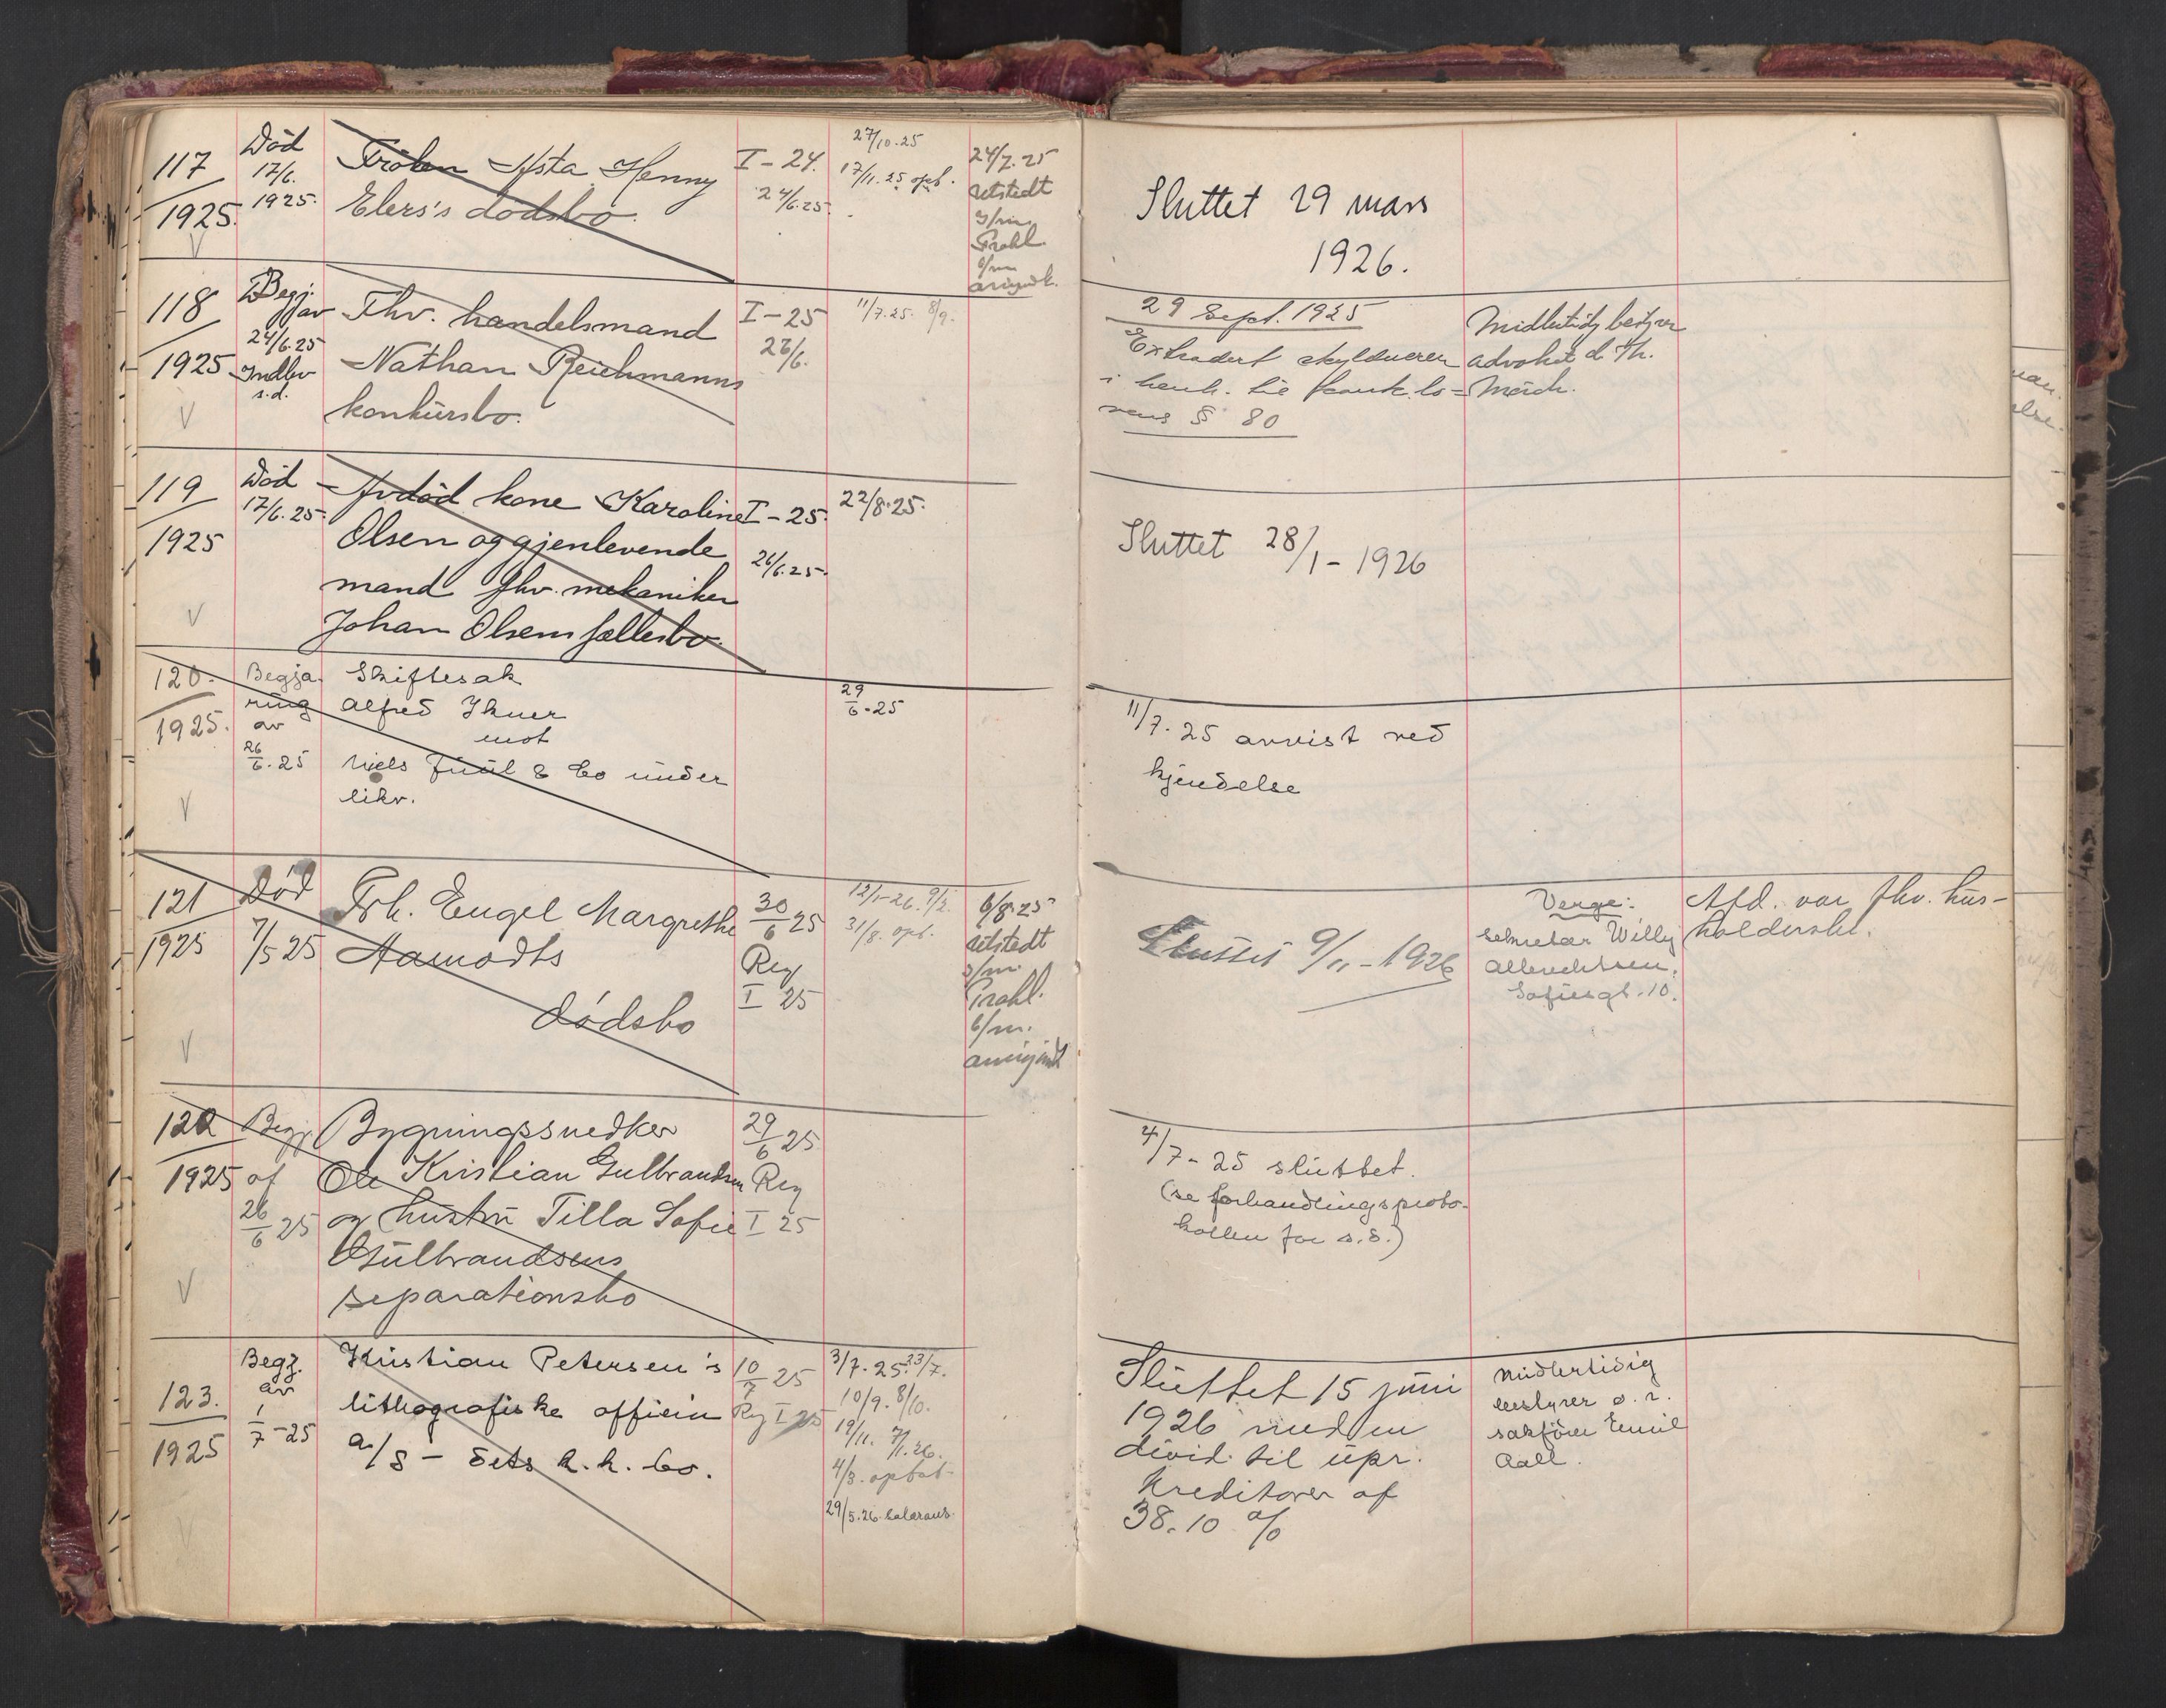 117
1925.
Död
17/6.
1925.
Fröken Asta Henny
Elers's dödsbo.
I - 24.
24/6.25.
27/10.25
17/11.25 opb.
24/7.25
utstedt
3/m
Prokl.
6/m
Sluttet 29 mars
1926.
118
1925
Begj.
av
24/6.25
Indlev
s.d.
Fhv. handelsmand
Nathan Reichmanns
konkursbo.
I - 25
26/6.
11/7.25. 8/9.
29 Sept. 1925
Extradert skyldneren
i henh. til konk.lo=
vens § 80
Midlertidig bestyrer
advokat d. Th.
119
1925
Död
17/6.25.
Avdöd kone Karoline
Olsen og gjenlevende
mand fhv. mekaniker
Johan Olsens fællesbo.
I - 25.
26/6.25.
22/8.25.
Sluttet 28/1 - 1926
120.
1925.
Begjæ
ring
av
26/6.25
Skiftesak
Alfred
mot
Niels Juul & Co under
likv.
29/6.25
11/7.25 avvist ved
kjendelse
121
1925
Död
7/5 25
Frk. Engel Margrethe
Aamodts
dödsbo
30/6 25
Reg
I 25
12/1-26. 9/2.
31/8. opb.
6/8.25
utstedt
3/m.
Prokl.
6/m.
Sluttet 9/11 - 1926
Verge:
sekretær Willy
Albrechtsen,
Sofiesgt. 10.
Afd. var fhv. hus-
holderske.
122
1925
Begj
af
26/6 25
Bygningssnedker
Ole Kristian Gulbrandsen
og hustru Tilla Sofie
Gulbrandsens
separationsbo
29/6 25
Reg
I 25
4/7 - 25 sluttet.
(se forhandlingsproto-
kollen for s.d.)
123.
1925
Begj.
av
1/7 - 25
Kristian Petersen's
lithografiske officin
a/s - dets k.k. bo.
10/7 25
Reg I 25
3/7.25. 23/7.
10/9. 8/10.
19/11. 7/1.26.
4/3. opbet.
29/5.26.
Sluttet 15 juni
1926 med en
divid. til upr.
kreditorer af
38.10 %
Midlertidig
bestyrer o.r.
sakförer Emil
Aall.